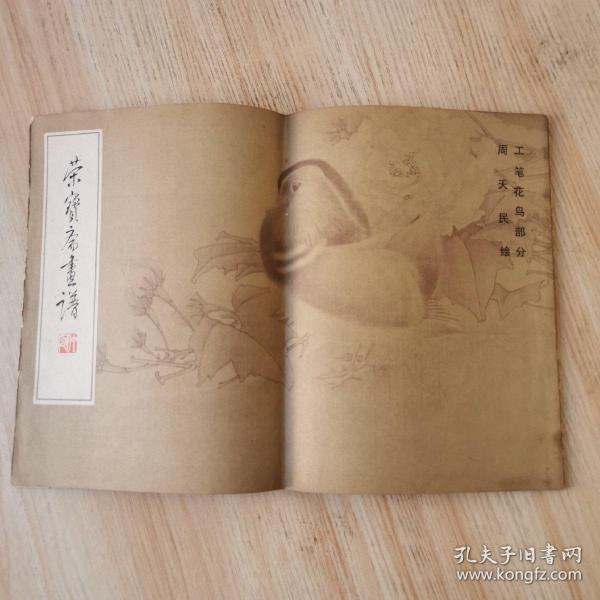 荣寳斋畫谱
工笔花鸟部分
周天民绘
孔夫子旧書网
www.kongfz.com